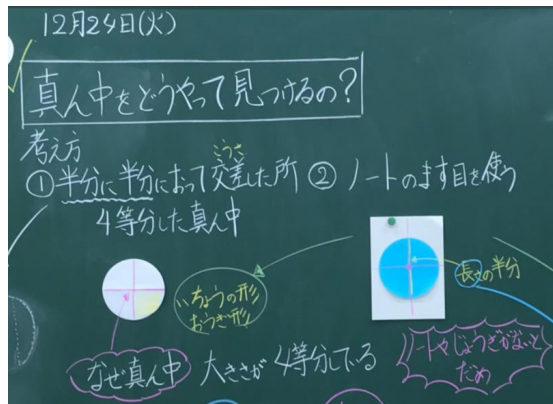 12月24日(火)
真ん中をどうやって見つけるの?
考え方
① 半分に半分におって交差した所
こうさ
4等分した真ん中
② ノートのます目を使う
いちょうの形
おうぎ形
長さの半分
なぜ真ん中
大きさが4等分している
ノートやじょうぎがないと
だめ